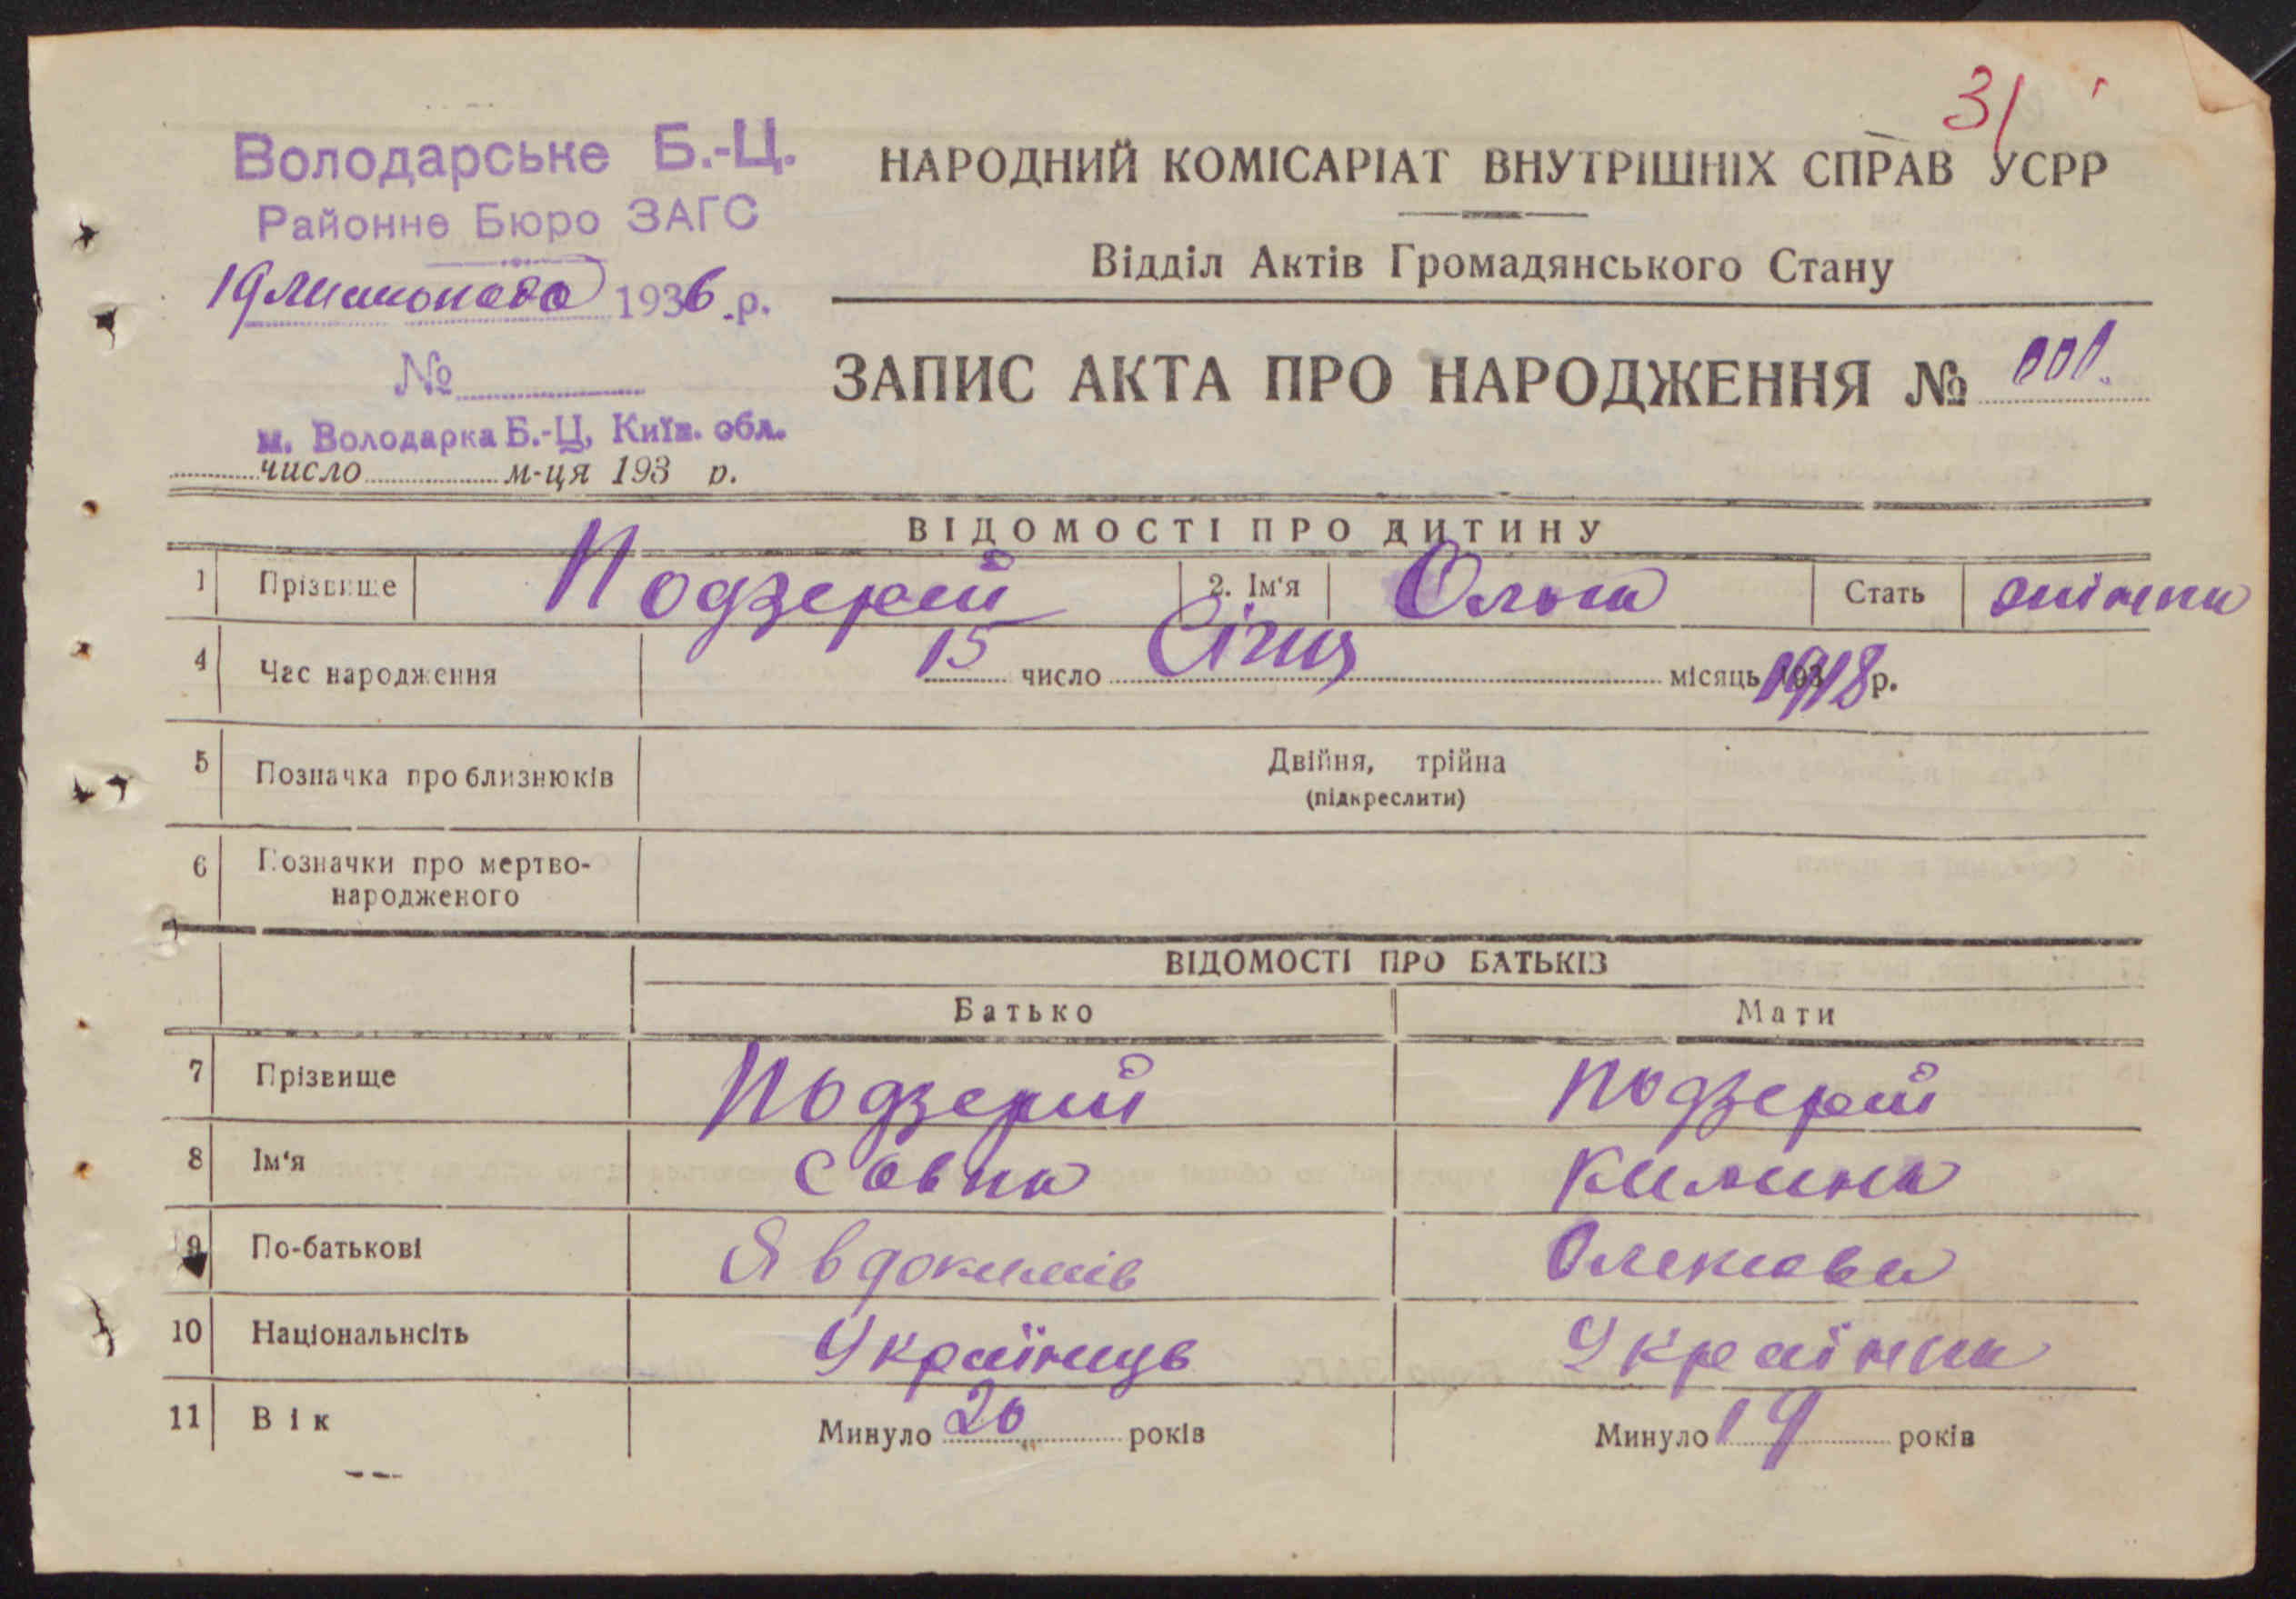 31
Володарське Б.-Ц.
Районне Бюро ЗАГС
19 листопада 1936 .р.
№
м. Володарка Б.-Ц, Київ. обл.
число м-ця 193 р.
НАРОДНИЙ КОМІСАРІАТ ВНУТРІШНІХ СПРАВ УСРР
Відділ Актів Громадянського Стану
ЗАПИС АКТА ПРО НАРОДЖЕННЯ №
ВІДОМОСТІ ПРО ДИТИНУ
1 Прізвище Подзерей 2. Ім'я Ольга Стать жіноча
4 Час народження 15 число Січня місяць 1918 р.
5 Позначка про близнюків Двійня, трійна
(підкреслити)
6 Позначки про мертво-
народженого
ВІДОМОСТІ ПРО БАТЬКІВ
Батько Мати
7 Прізвище Подзерий Подзерей
8 Ім'я Савка Килина
9 По-батькові Явдокимів Олексієва
10 Національнсіть Українць Українка
11 Вік Минуло 20 років Минуло 19 років